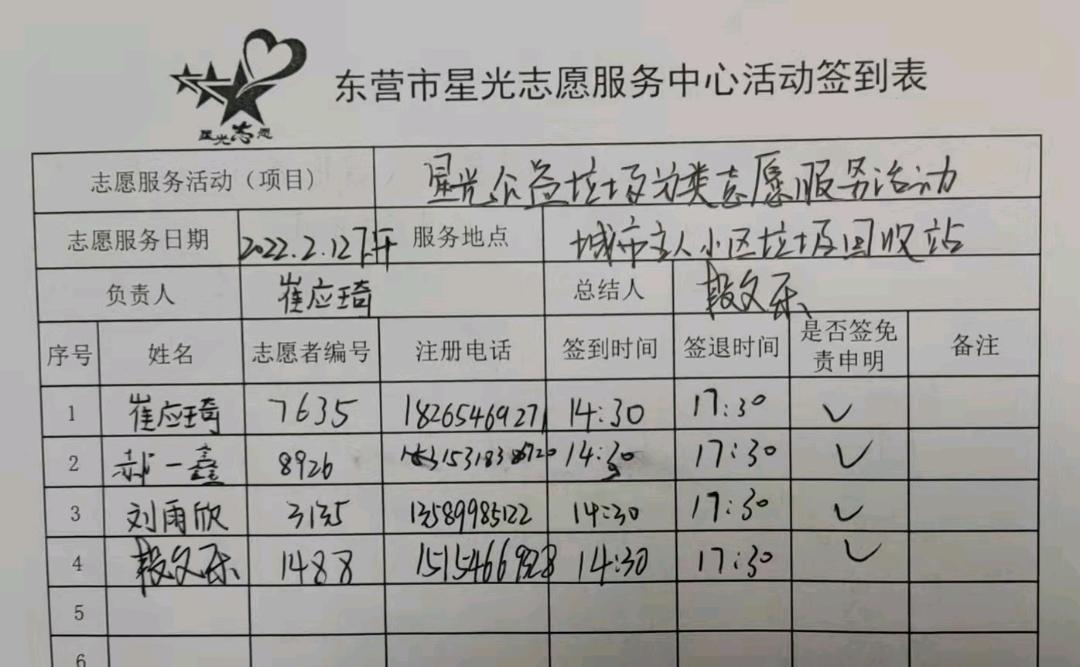 星光志愿
东营市星光志愿服务中心活动签到表
志愿服务活动（项目） 星光公益垃圾分类志愿服务活动
志愿服务日期 2022.2.12下午 服务地点 城市主人小区垃圾回收站
负责人 崔应琦 总结人 段文乐
序号 姓名 志愿者编号 注册电话 签到时间 签退时间 是否签免责申明 备注
1 崔应琦 7635 18265469271 14:30 17:30 ✓
2 郝一鑫 8926 14:30 17:30 ✓
3 刘雨欣 3135 13589985122 14:30 17:30 ✓
4 段文乐 1488 14:30 17:30 ✓
5
6